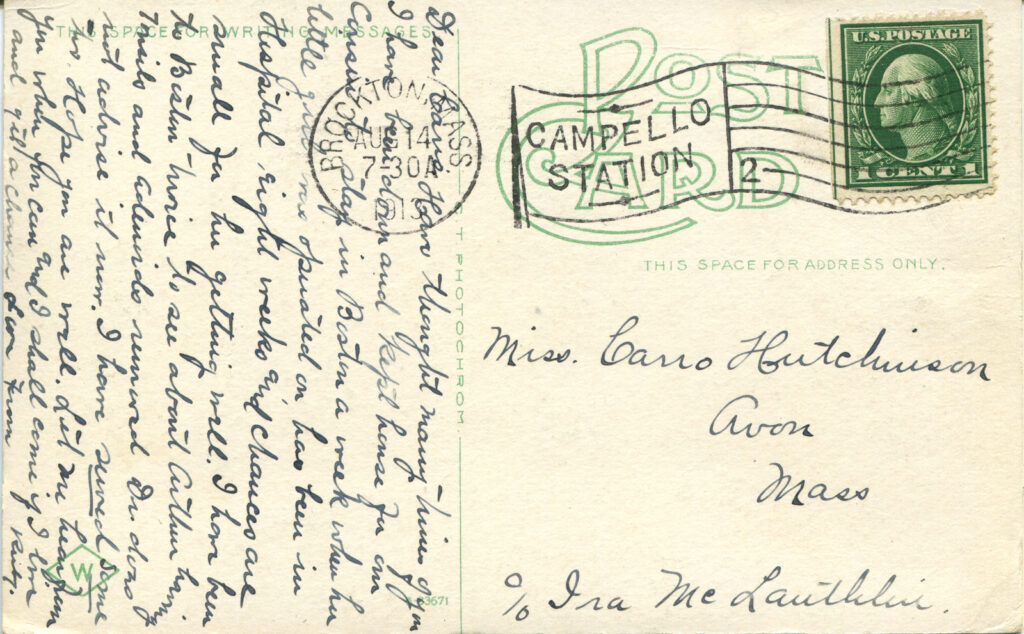 THIS SPACE FOR WRITING MESSAGES
Dear Carro, Have thought many times of you
I have been down and kept house for our
to stay in Boston a week when her
little girl was operated on has been in
Hospital eight weeks and chances are
small for her getting well. I have been
to Boston twice to see about Arthur having
tonsils and adenoids removed Dr. does
not advise it now. I have sewed some
too. Hope you are well. Let me hear from
you when you can and I shall come if I live
and get a chance Love from
W
PHOTOCHROM
BROCKTON, MASS.
AUG 14
7-30A
CAMPELLO
STATION
2
POST
CARD
U.S. POSTAGE
1 CENT 1
THIS SPACE FOR ADDRESS ONLY.
Miss. Carro Hutchinson
Avon
Mass
c/o Ira Mc Lauthlin.